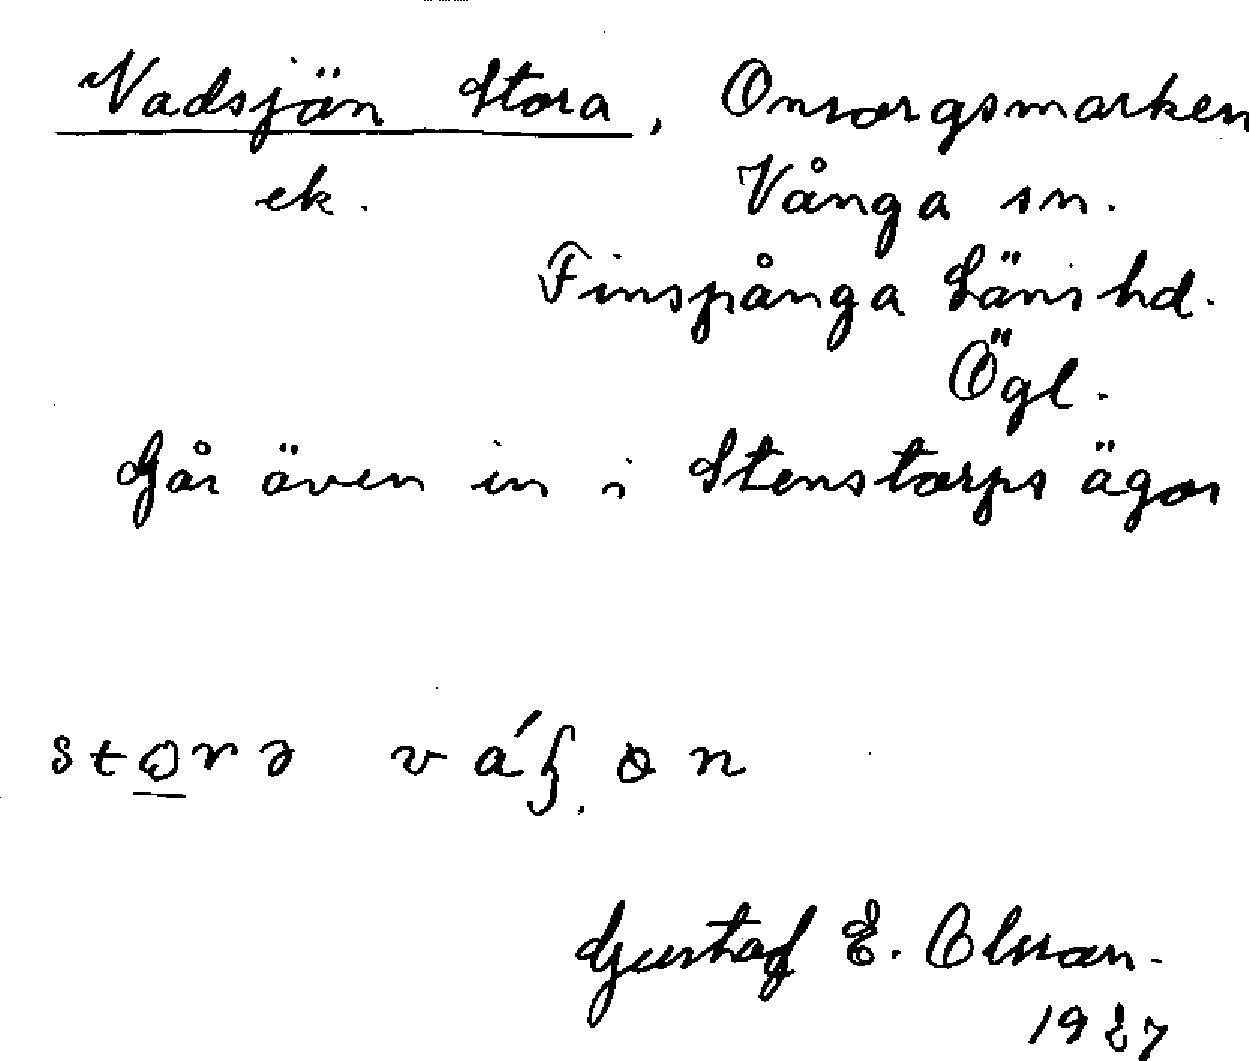 Vadsjön Stora, Onsorgsmarken
ek. Vånga sn.
Finspånga Läns hd.
Ögl.
Går även in i Stenstorps ägor
Gustaf E. Olsson.
1927